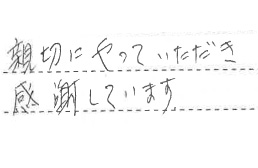 親切にやっていただき
感謝しています